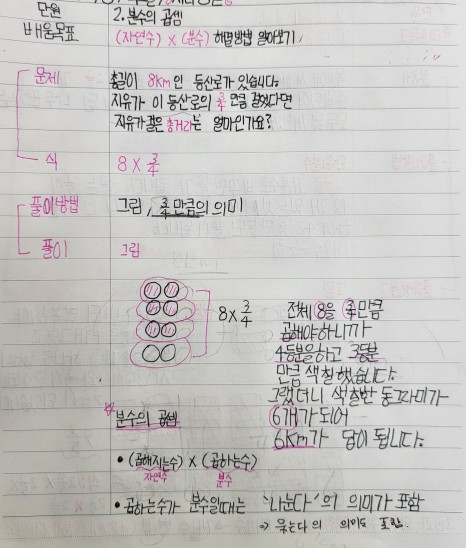 단원 2. 분수의 곱셈
배움목표 (자연수) × (분수) 해결방법 알아보기
문제 총길이 8km인 등산로가 있습니다.
지유가 이 등산로의 3/4 만큼 걸었다면
지유가 걸은 총거리는 얼마인가요?
식 8 × 3/4
풀이방법 그림, 3/4만큼의 의미
풀이 그림
8 × 3/4
전체 8을 3/4만큼
곱해야하니까
4등분을하고 3등분
만큼 색칠했습니다.
그랬더니 색칠한 동그라미가
6개가 되어
6km가 답이 됩니다.
☆분수의 곱셈
• (곱해지는수) × (곱하는수)
자연수 분수
• 곱하는수가 분수일때는 '나눈다'의 의미가 포함
⇒ 묶는다의 의미도 포함.